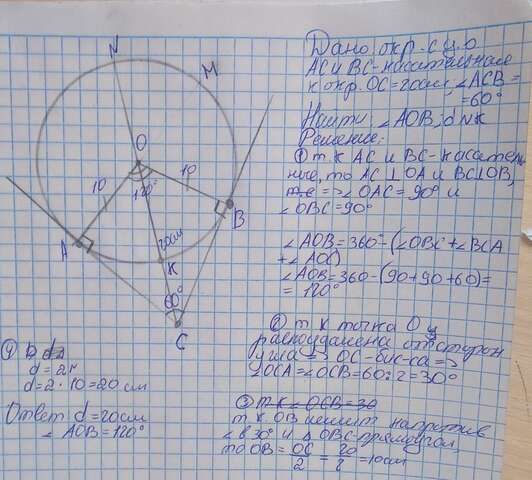 N
M
O
10
10
120°
B
A
20см
K
60°
C
Дано, окр. с ц. О
AC и BC-касательные
к окр. OC=20см, ∠ACB=
=60°
Найти, ∠AOB; d NK
Решение:
① т.к AC и BC-касатель
ные, то AC⊥OA и BC⊥OB,
=> ∠OAC = 90° и
∠OBC=90°
∠AOB=360°-(∠OBC+∠BCA
+∠AOC)
∠AOB=360-(90+90+60)=
=120°
② т к точка О
равноудалена от сторон
угла => OC-бис-са =>
∠OCA=∠OCB=60:2=30°
③ т.к ∠OCB=30
т к OB лежит напротив
∠ в 30° и △OBC-прямоугол,
то OB=OC/2=20/2=10см
④ D
d=2r
d=2·10=20см
Ответ d=20см
∠AOB=120°